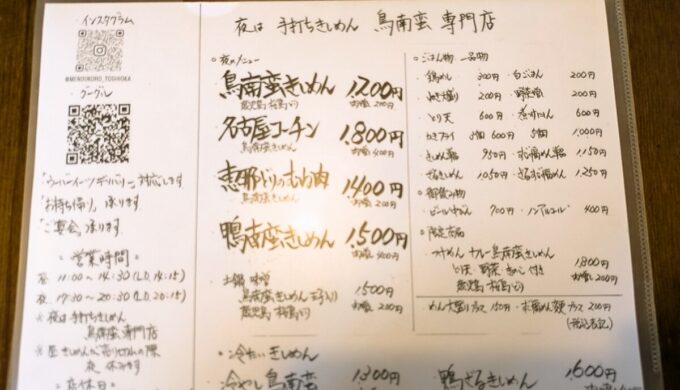 ・インスタグラム
@MENDOKORO_TOSHIOKA
・グーグル
「ウーバーイーツデリバリー」対応します
「お持ち帰り」承ります
「ご宴会」承ります
・営業時間・
昼 11:00〜14:30(L.O.14:15)
夜 17:30〜20:30(L.O.20:15)
※夜は手打ちきしめん
鳥南蛮専門店
※昼きしめんが売り切れの際
夜 休みます
・店休日・
夜は 手打ちきしめん 鳥南蛮 専門店
○夜メニュー
鳥南蛮きしめん 1,200円
鹿児島 桜島どり 肉増し 200円
名古屋コーチン 1,800円
鳥南蛮きしめん 肉増し 400円
恵那どりのむね肉 1,400円
鳥南蛮きしめん 肉増し 200円
鴨南蛮きしめん 1,500円
肉増し 400円
土鍋 味噌 1,500円
鳥南蛮きしめん 玉子入り 肉増し 200円
鹿児島 桜島どり
・冷たいきしめん
冷やし鳥南蛮 1,300円
○ごはん物 一品物
・鶏めし 300円 ・白ごはん 200円
200円 ・野菜増 200円
・とり天 600円 600円
・かきフライ 3個 600円 5個 1,000円
・きしめん 950円 1,150円
・ざるきしめん 1,050円 1,250円
○御飲み物
・ビール 700円 ・ノンアルコール 400円
○限定商品
・つけめん カレー鳥南蛮きしめん 1,800円
とり天 野菜 きのこ 付き 肉増し 200円
鹿児島 桜島どり
・めん大盛りプラス 150円 プラス 200円
(税込表記)
・鴨ざるきしめん 1,600円